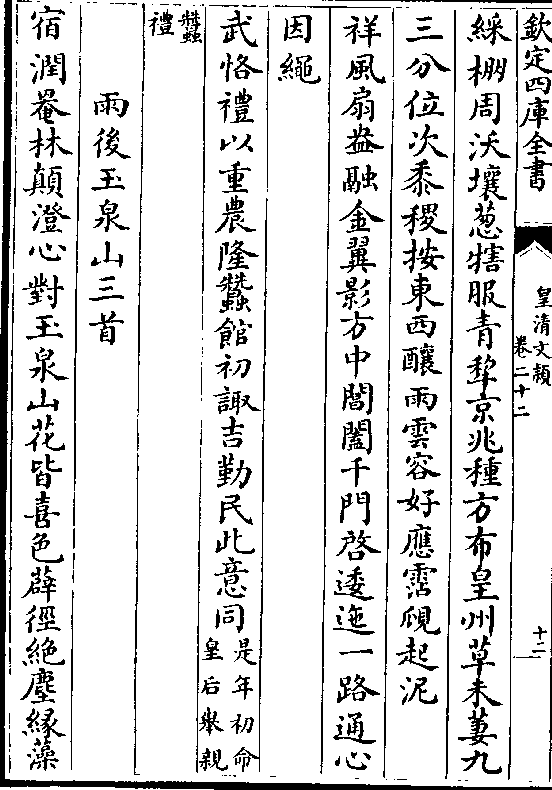 欽定四庫全書
皇清文穎
卷二十二
十二
綵棚周沃壤葱犗服青犂京兆種方布皇州草未萋九
三分位次黍稷按東西釀雨雲容好應霑覛起泥
祥風扇盎融金翼影方中閶闔千門啓逶迤一路通心
因繩
武恪禮以重農隆蠶館初諏吉勤民此意同是年初命
皇后舉親
蠶
禮
雨後玉泉山三首
宿潤菴林顛澄心對玉泉山花皆喜色薜徑絶塵縁藻